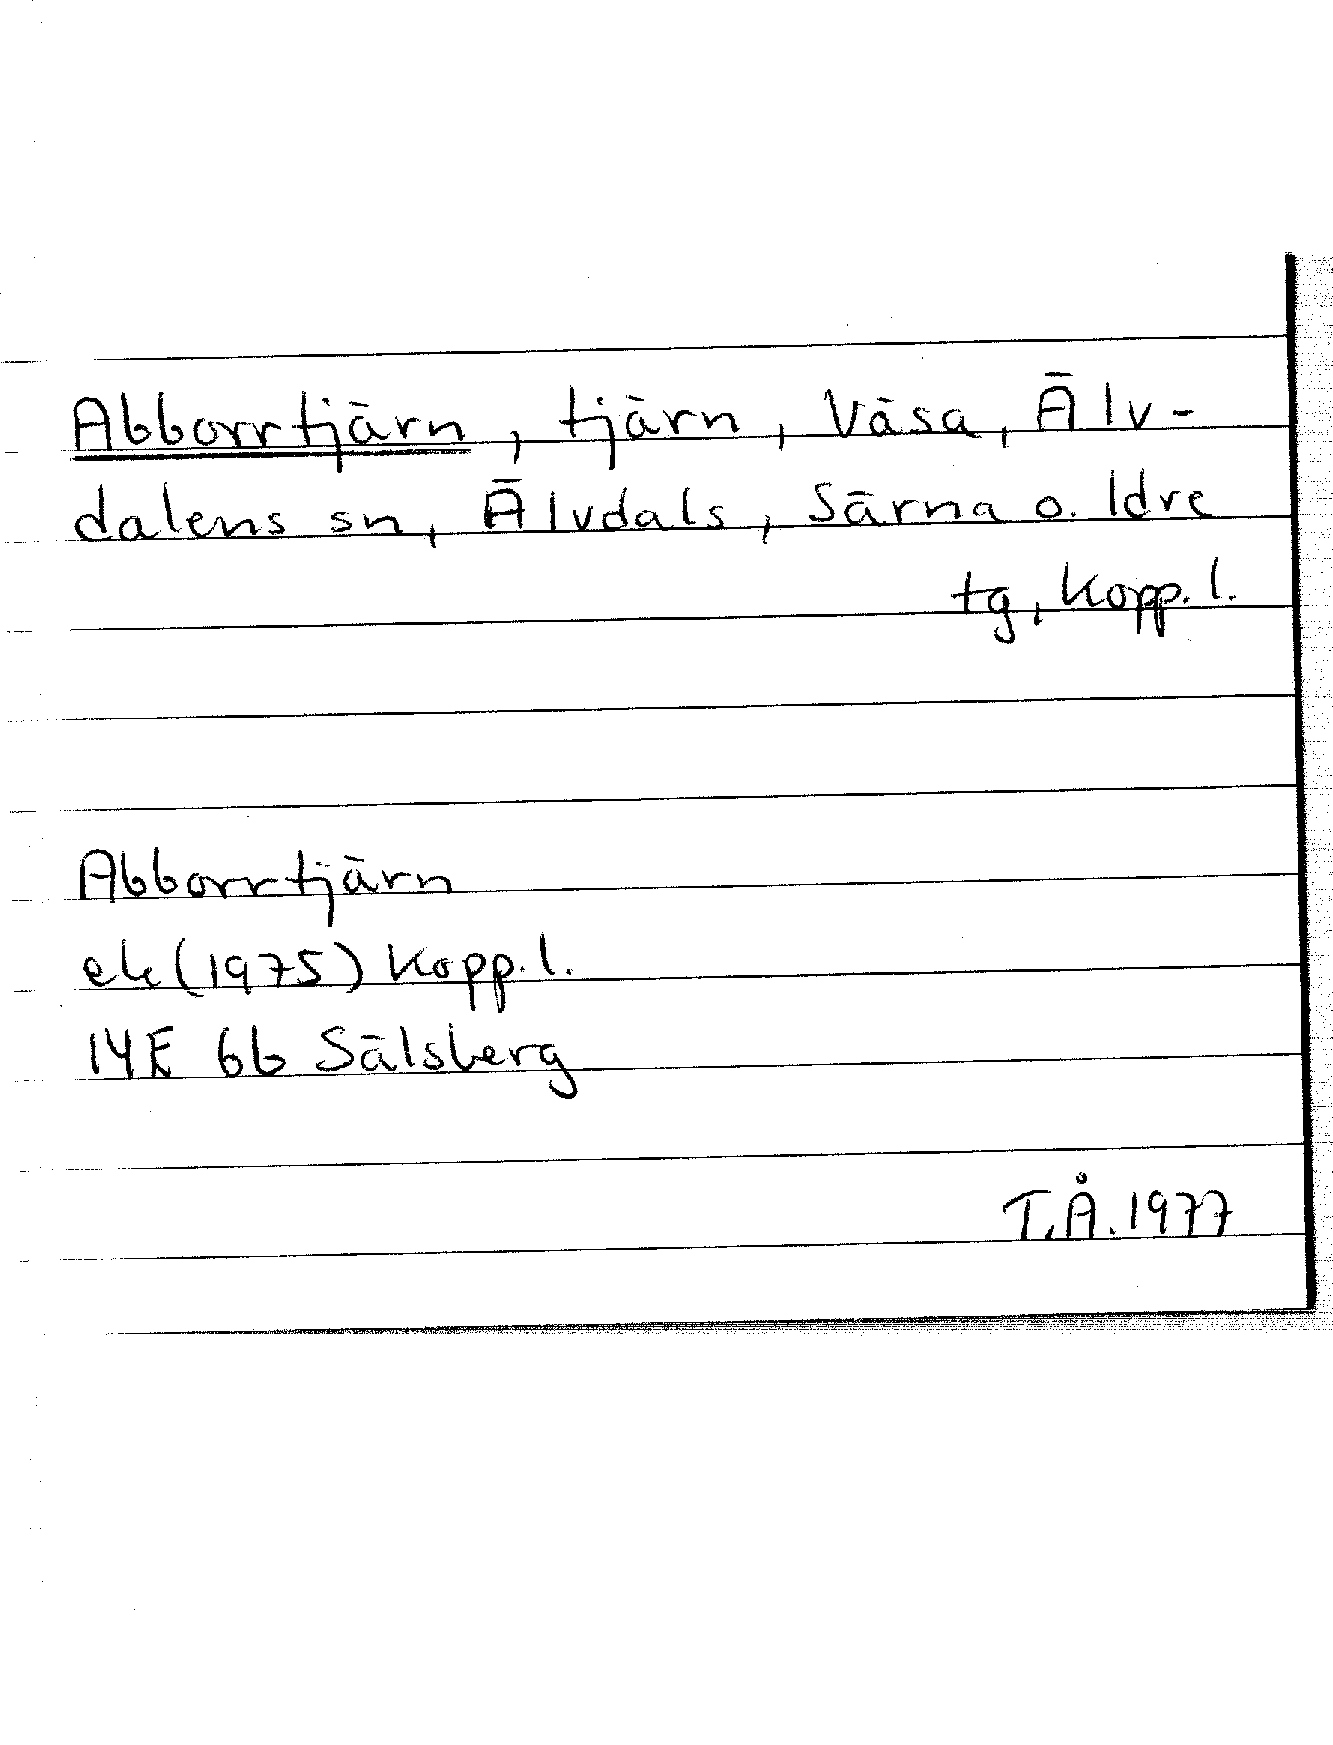 Abborrtjärn, tjärn, Väsa, Älv-
dalens sn, Älvdals, Särna o. Idre
tg, Kopp. l.
Abborrtjärn
ek (1975) Kopp. l.
14E 6b Sälsberg
T.Å. 1977